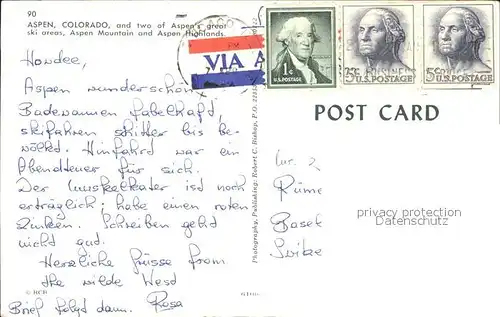 90
ASPEN, COLORADO, and two of Aspen's great
ski areas, Aspen Mountain and Aspen Highlands.
VIA A
1¢
U.S. POSTAGE
5c
U.S. POSTAGE
5c
U.S. POSTAGE
POST CARD
Howdee,
Aspen wunderschön
Badewannen fabelhaft
skifahren bis be-
wölkt. Hinfahrt war ein
Abendteuer für sich.
Der Muskelkater ist noch
erträglich; habe einen roten
Zinken. Schreiben gehd
nicht gud.
Herzliche Grüsse from
the wilde Wesd
Brief folgt dann. Rosa
Photography, Publishing: Robert C. Bishop, P.O.
Basel
privacy protection
Datenschutz
© RCB